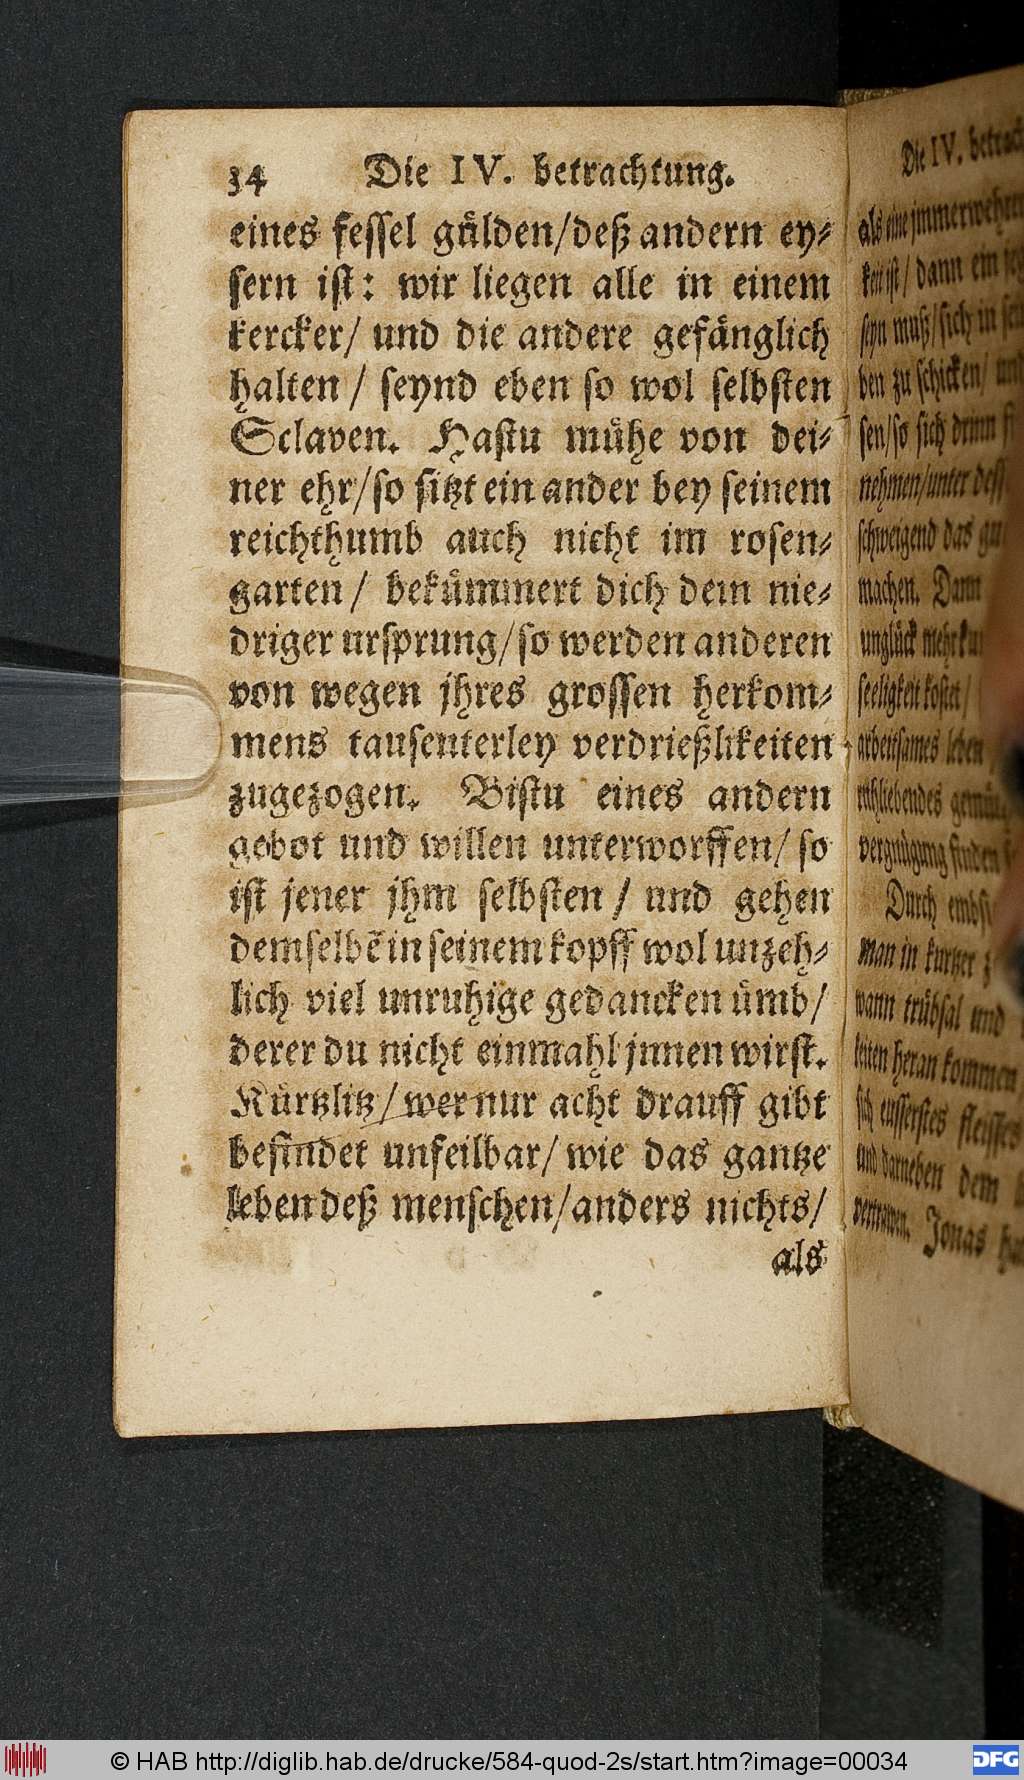 34 Die IV. betrachtung.
eines fessel gülden/deß andern ey-
sern ist: wir liegen alle in einem
kercker/ und die andere gefänglich
halten / seynd eben so wol selbsten
Sclaven. Hastu mühe von dei-
ner ehr/so sitzt ein ander bey seinem
reichthumb auch nicht im rosen-
garten/ bekümmert dich dein nie-
driger ursprung/so werden anderen
von wegen jhres grossen herkom-
mens tausenterley verdrießlikeiten
zugezogen. Bistu eines andern
gebot und willen unterworffen/ so
ist jener jhm selbsten / und gehen
demselbẽ in seinem kopff wol unzeh-
lich viel unruhige gedancken ümb/
derer du nicht einmahl jnnen wirst.
Kürtzlitz/wer nur acht drauff gibt
befindet unfeilbar/ wie das gantze
leben deß menschen/anders nichts/
als
Die IV.
als eine
keit ist/ dann ein
seyn muß/sich in
ben zu schicken/
sen/so sich
nehmen/unter
schweigend das
machen. Dann
unglück
seeligkeit kostet/
arbeitsames leben
ruhliebendes
vergnügung finden
Durch
man in kurtzer
wann trübsal und
keiten heran kommen
sich eusserstes
und darneben dem
vertrawen. Jonas
© HAB http://diglib.hab.de/drucke/584-quod-2s/start.htm?image=00034
DFG